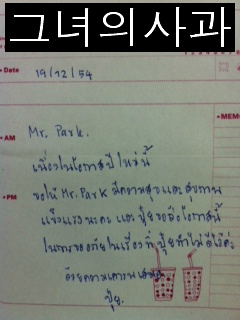 그녀의사과
Date 19/12/54
MEMO
AM
Mr. Park.
เนื่องในโอกาสปีใหม่นี้
PM
ขอให้ Mr. Park มีความสุขและสุขภาพ
แข็งแรงนะคะ และปุ้ยขอถือโอกาสนี้
ในการขออภัยในเรื่องที่ปุ้ยทำไม่ดีไว้ค่ะ
ด้วยความเคารพ
ปุ้ย.